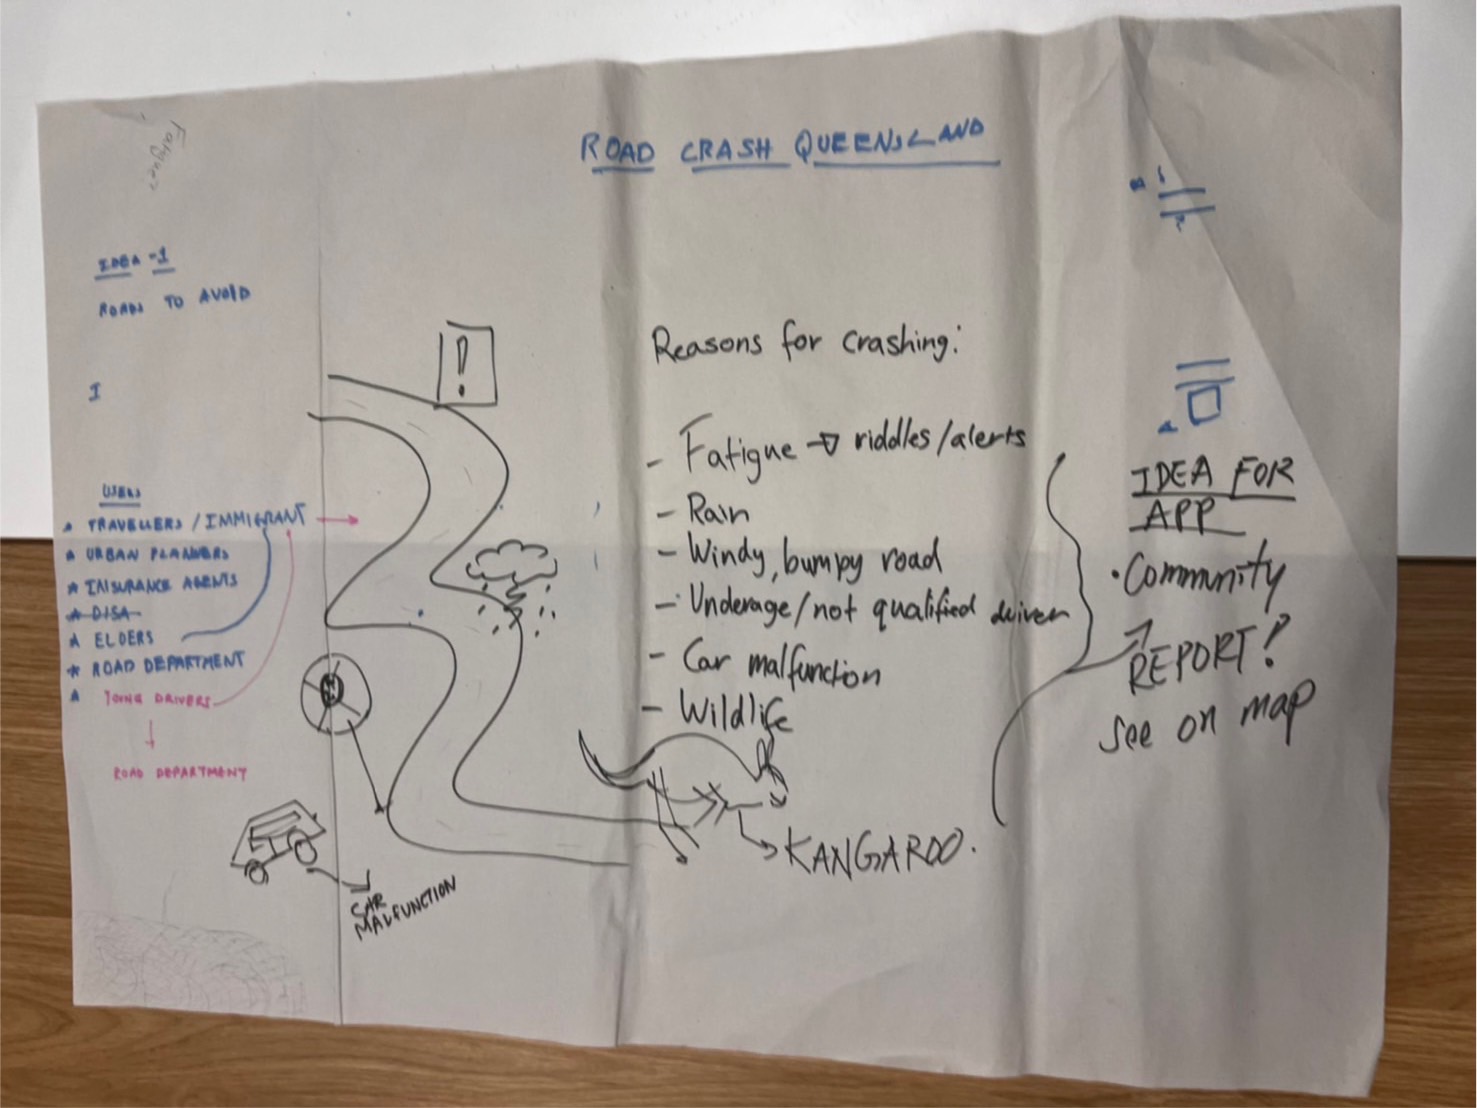 ROAD CRASH QUEENSLAND
IDEA -1
ROADS TO AVOID
I
USERS
TRAVELLERS / IMMIGRANT
URBAN PLANNERS
INSURANCE AGENTS
DISA
ELDERS
ROAD DEPARTMENT
YOUNG DRIVERS
ROAD DEPARTMENT
!
CAR
MALFUNCTION
Reasons for crashing:
- Fatigue → riddles/alerts
- Rain
- Windy, bumpy road
- Underage/not qualified driver
- Car malfunction
- Wildlife
KANGAROO.
IDEA FOR
APP
• Community
REPORT?
See on map